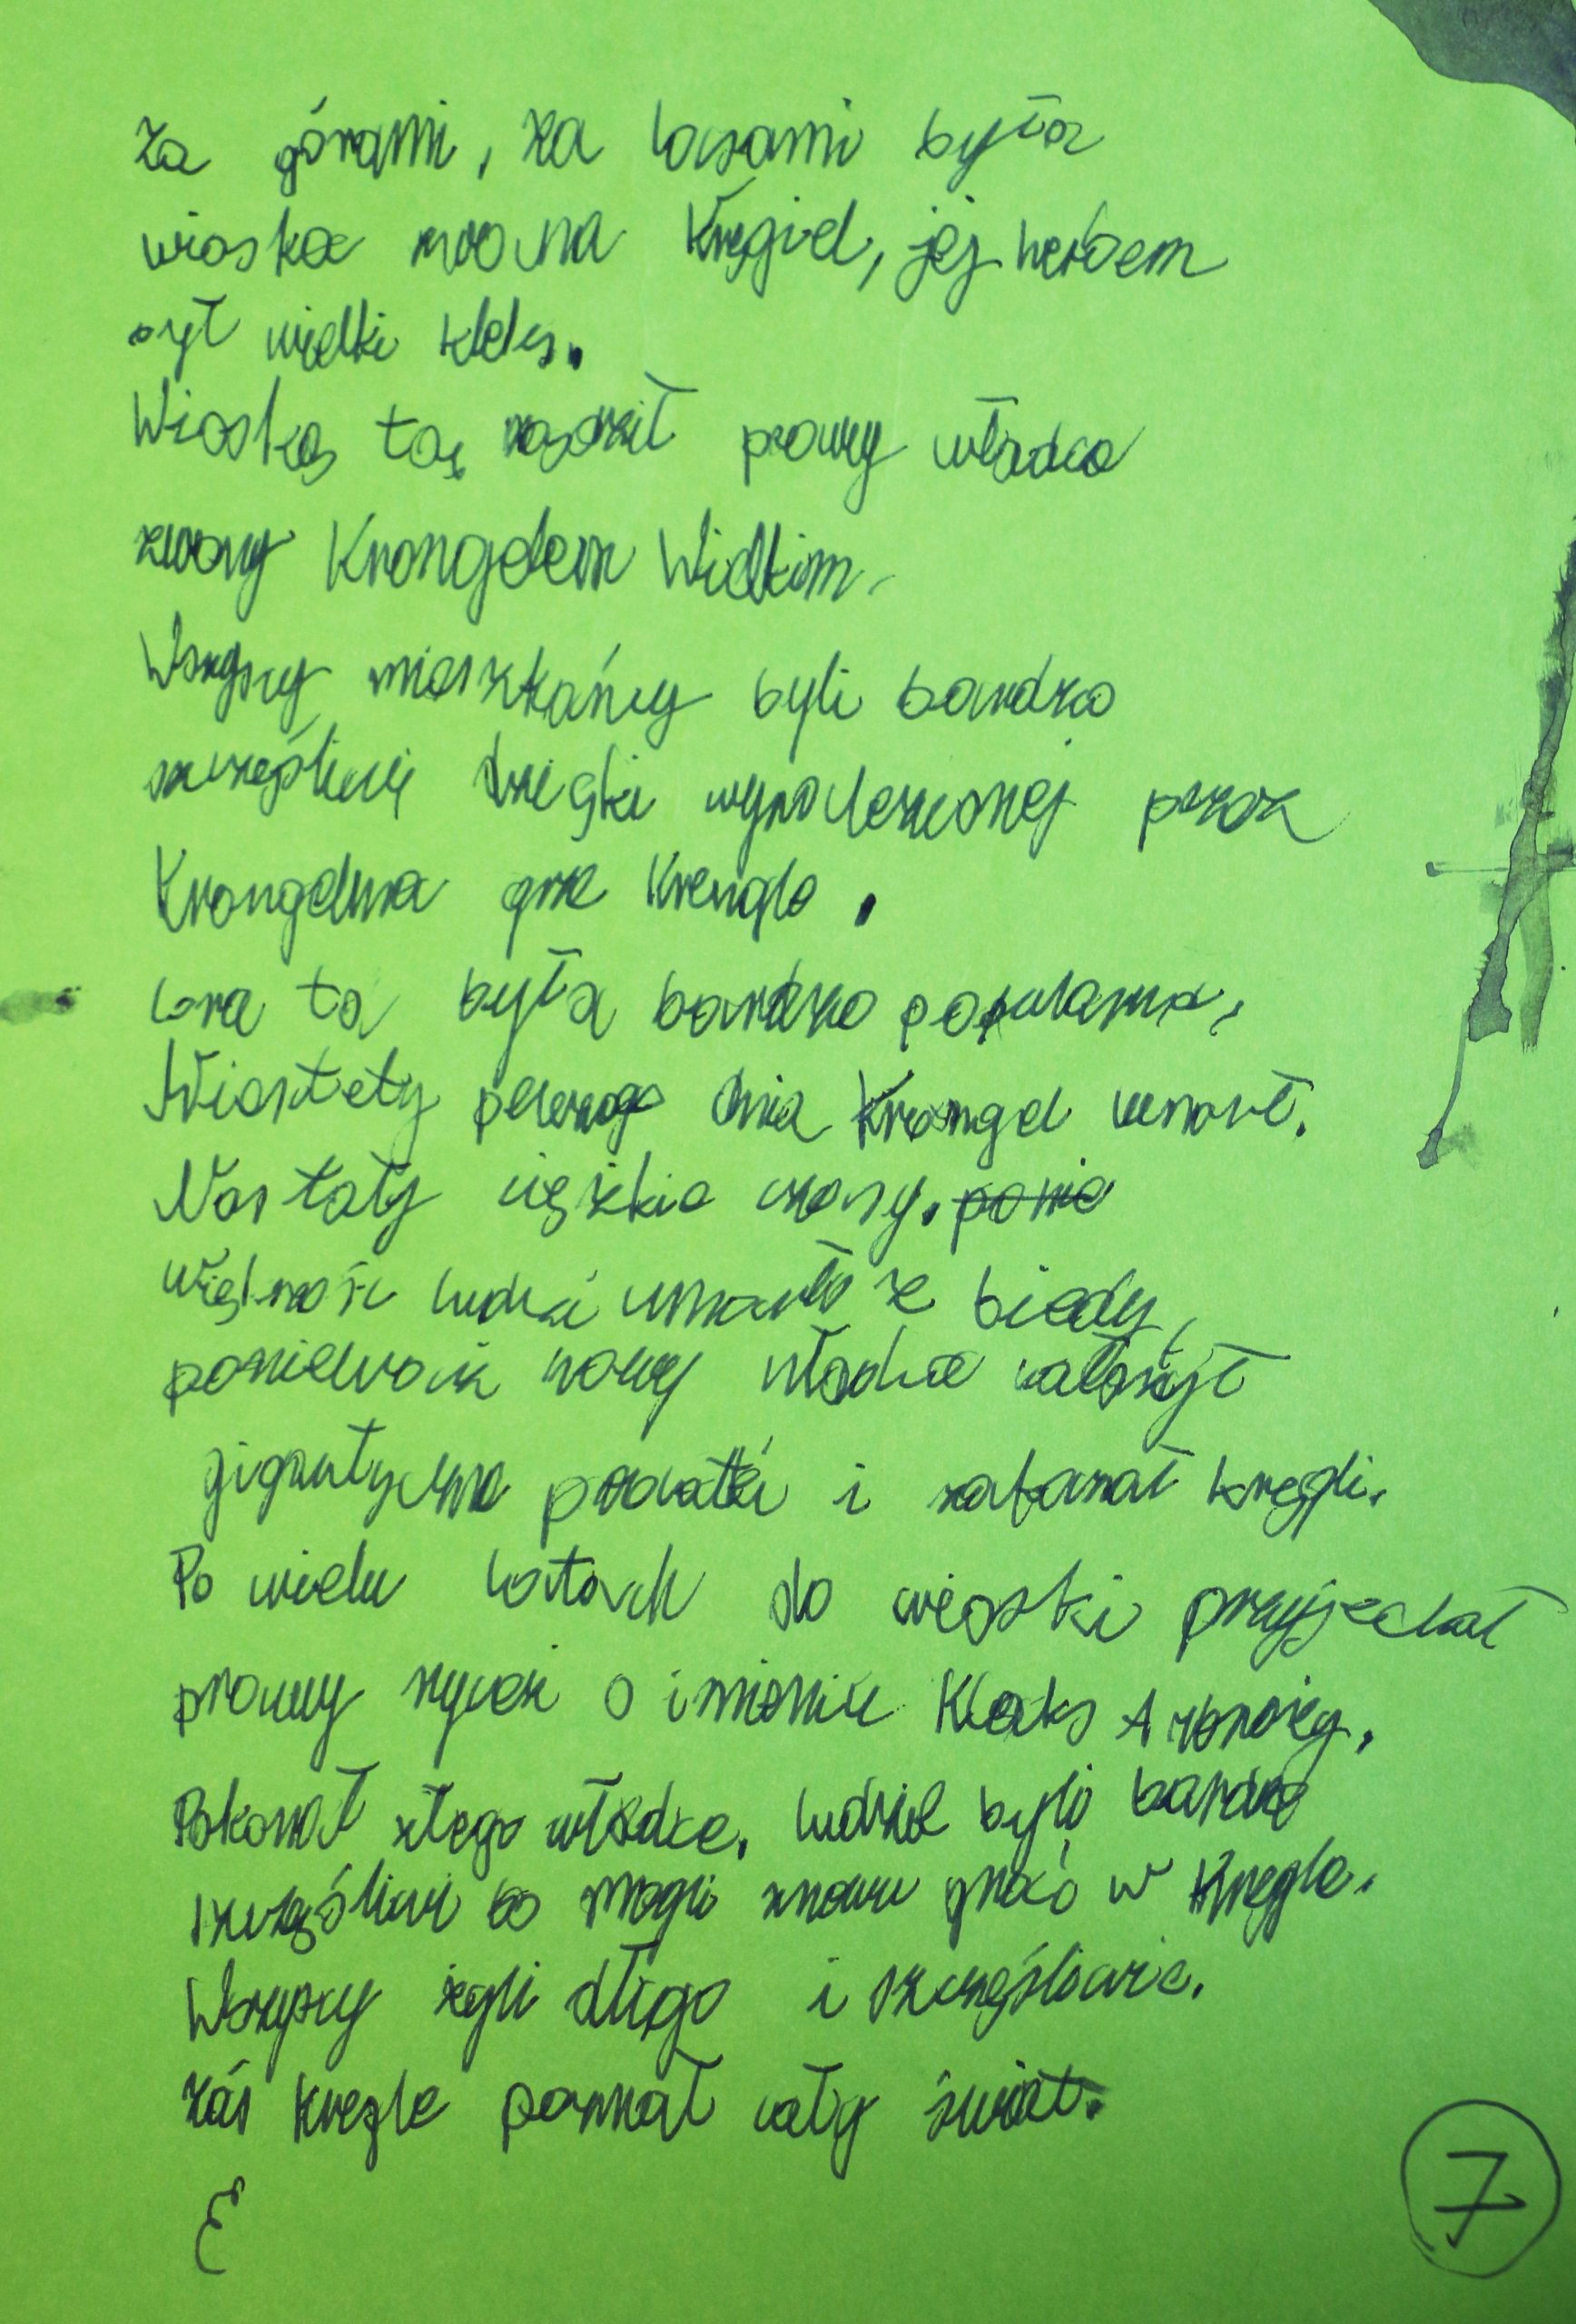 Za górami, za lasami była
wioska zwana Kręgiel, jej herbem
był wielki kleks.
Wioską tą rządził prawy władca
zwany Krongelem Wielkim.
Wszyscy mieszkańcy byli bardzo
szczęśliwi dzięki wynalezionej przez
Krongelma grze Krengle.
Gra ta była bardzo popularna,
Niestety pewnego dnia Krongel umarł.
Nastały ciężkie czasy. ponie
większość ludzi umarło z biedy,
ponieważ nowy władca założył
gigantyczne podatki i zakazał kręgli.
Po wielu latach do wioski przyjechał
prawy rycerz o imieniu Kleks
Pokonał złego władce. ludzie byli bardzo
szczęśliwi bo mogli znowu grać w Kręgle.
Wszyscy żyli długo i szczęśliwie.
Zaś kręgle poznał cały świat.
E
7